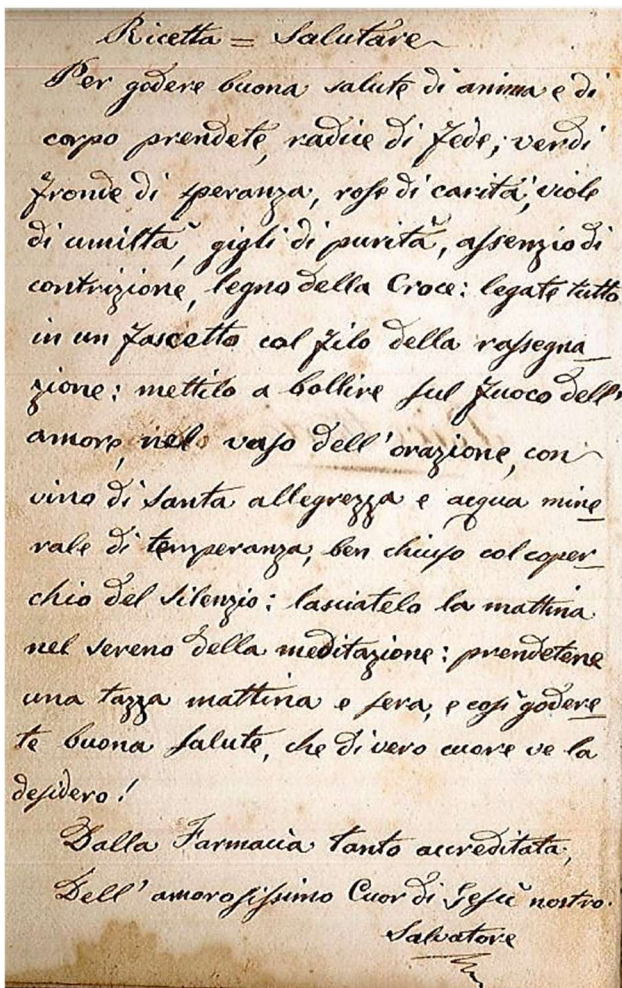 Ricetta = Salutare
Per godere buona salute di anima e di
corpo prendete, radice di Fede; verdi
fronde di speranza, rose di carità; viole
di umiltà, gigli di purità, assenzio di
contrizione, legno della Croce: legate tutto
in un fascetto col filo della rassegna_
zione: mettilo a bollire sul fuoco dell'
amore, nel vaso dell'orazione, con
vino di Santa allegrezza e acqua mine_
rale di temperanza, ben chiuso col coper_
chio del Silenzio: lasciatelo la mattina
nel sereno della meditazione: prendetene
una tazza mattina e sera, e così godere_
te buona salute, che di vero cuore ve la
desidero!
Dalla Farmacia tanto accreditata,
Dell' amorosissimo Cuor di Gesù nostro.
Salvatore